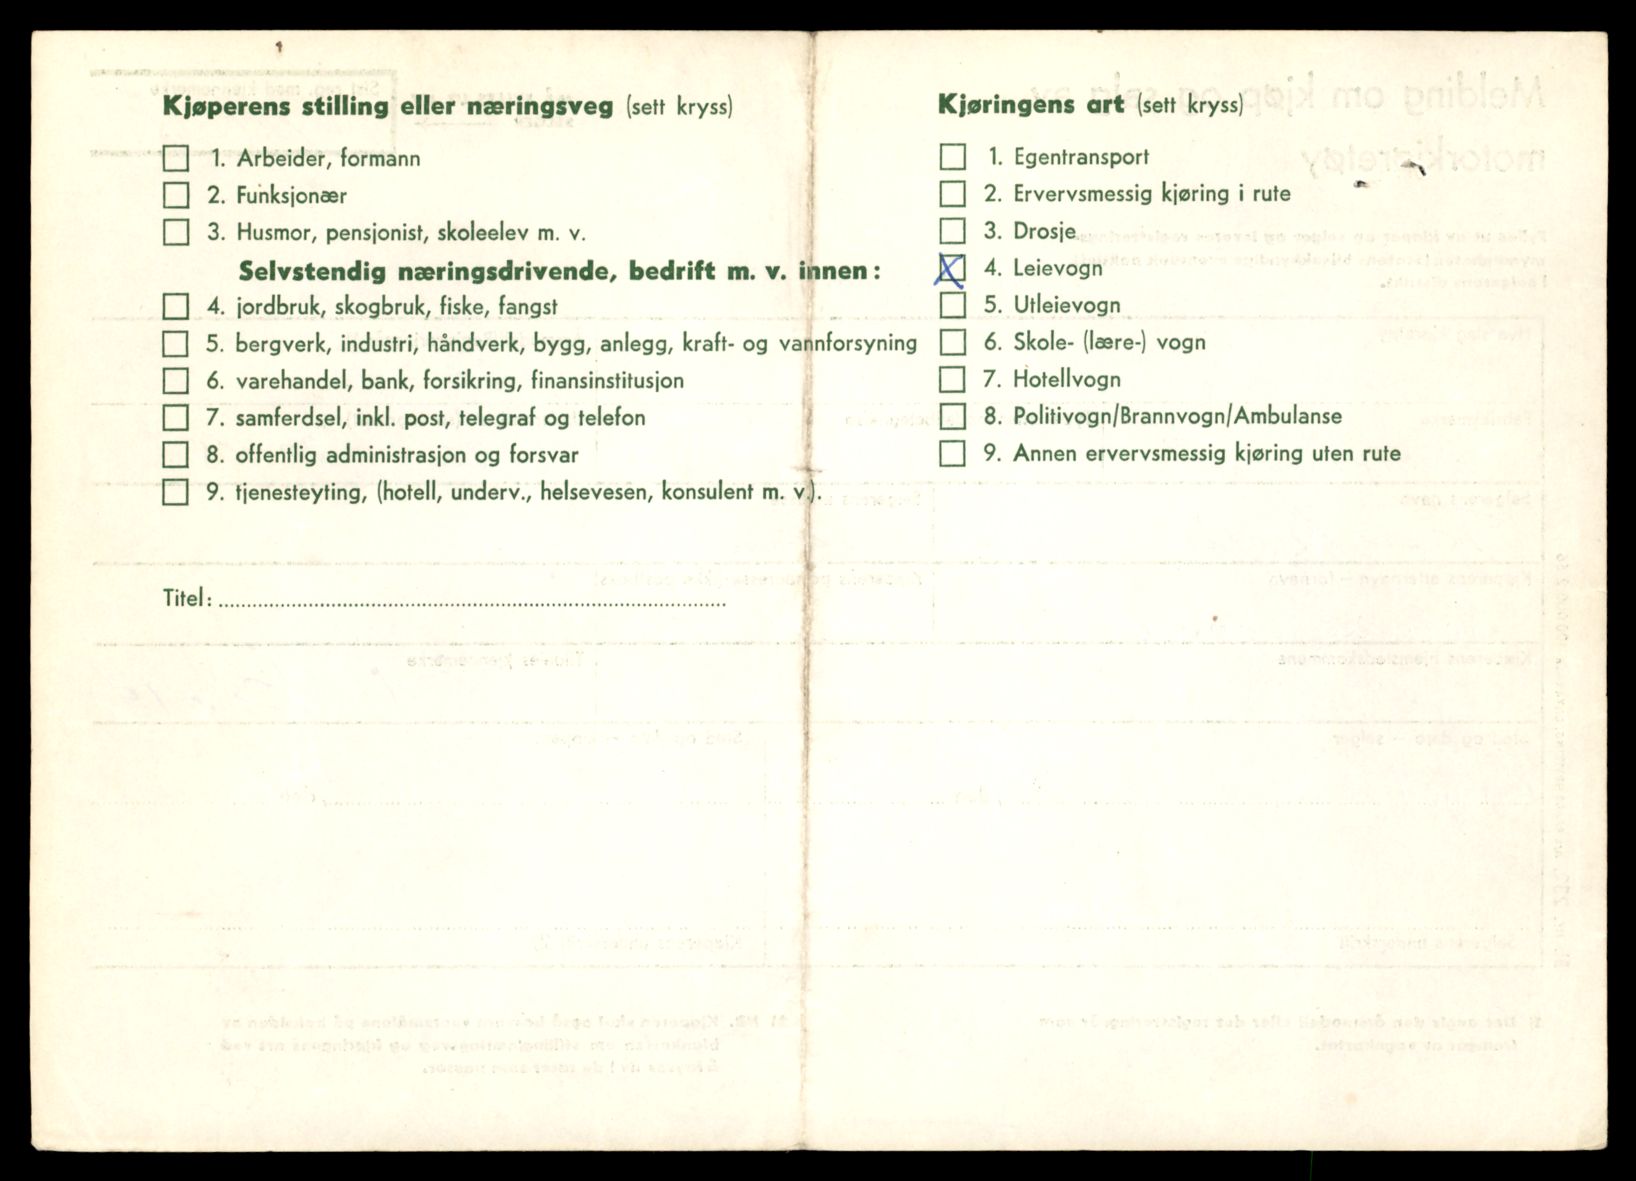 Kjøperens stilling eller næringsveg (sett kryss)
1. Arbeider, formann
2. Funksjonær
3. Husmor, pensjonist, skoleelev m. v.
Selvstendig næringsdrivende, bedrift m. v. innen:
4. jordbruk, skogbruk, fiske, fangst
5. bergverk, industri, håndverk, bygg, anlegg, kraft- og vannforsyning
6. varehandel, bank, forsikring, finansinstitusjon
7. samferdsel, inkl. post, telegraf og telefon
8. offentlig administrasjon og forsvar
9. tjenesteyting, (hotell, underv., helsevesen, konsulent m. v.).
Titel:
Kjøringens art (sett kryss)
1. Egentransport
2. Ervervsmessig kjøring i rute
3. Drosje
X 4. Leievogn
5. Utleievogn
6. Skole- (lære-) vogn
7. Hotellvogn
8. Politivogn/Brannvogn/Ambulanse
9. Annen ervervsmessig kjøring uten rute